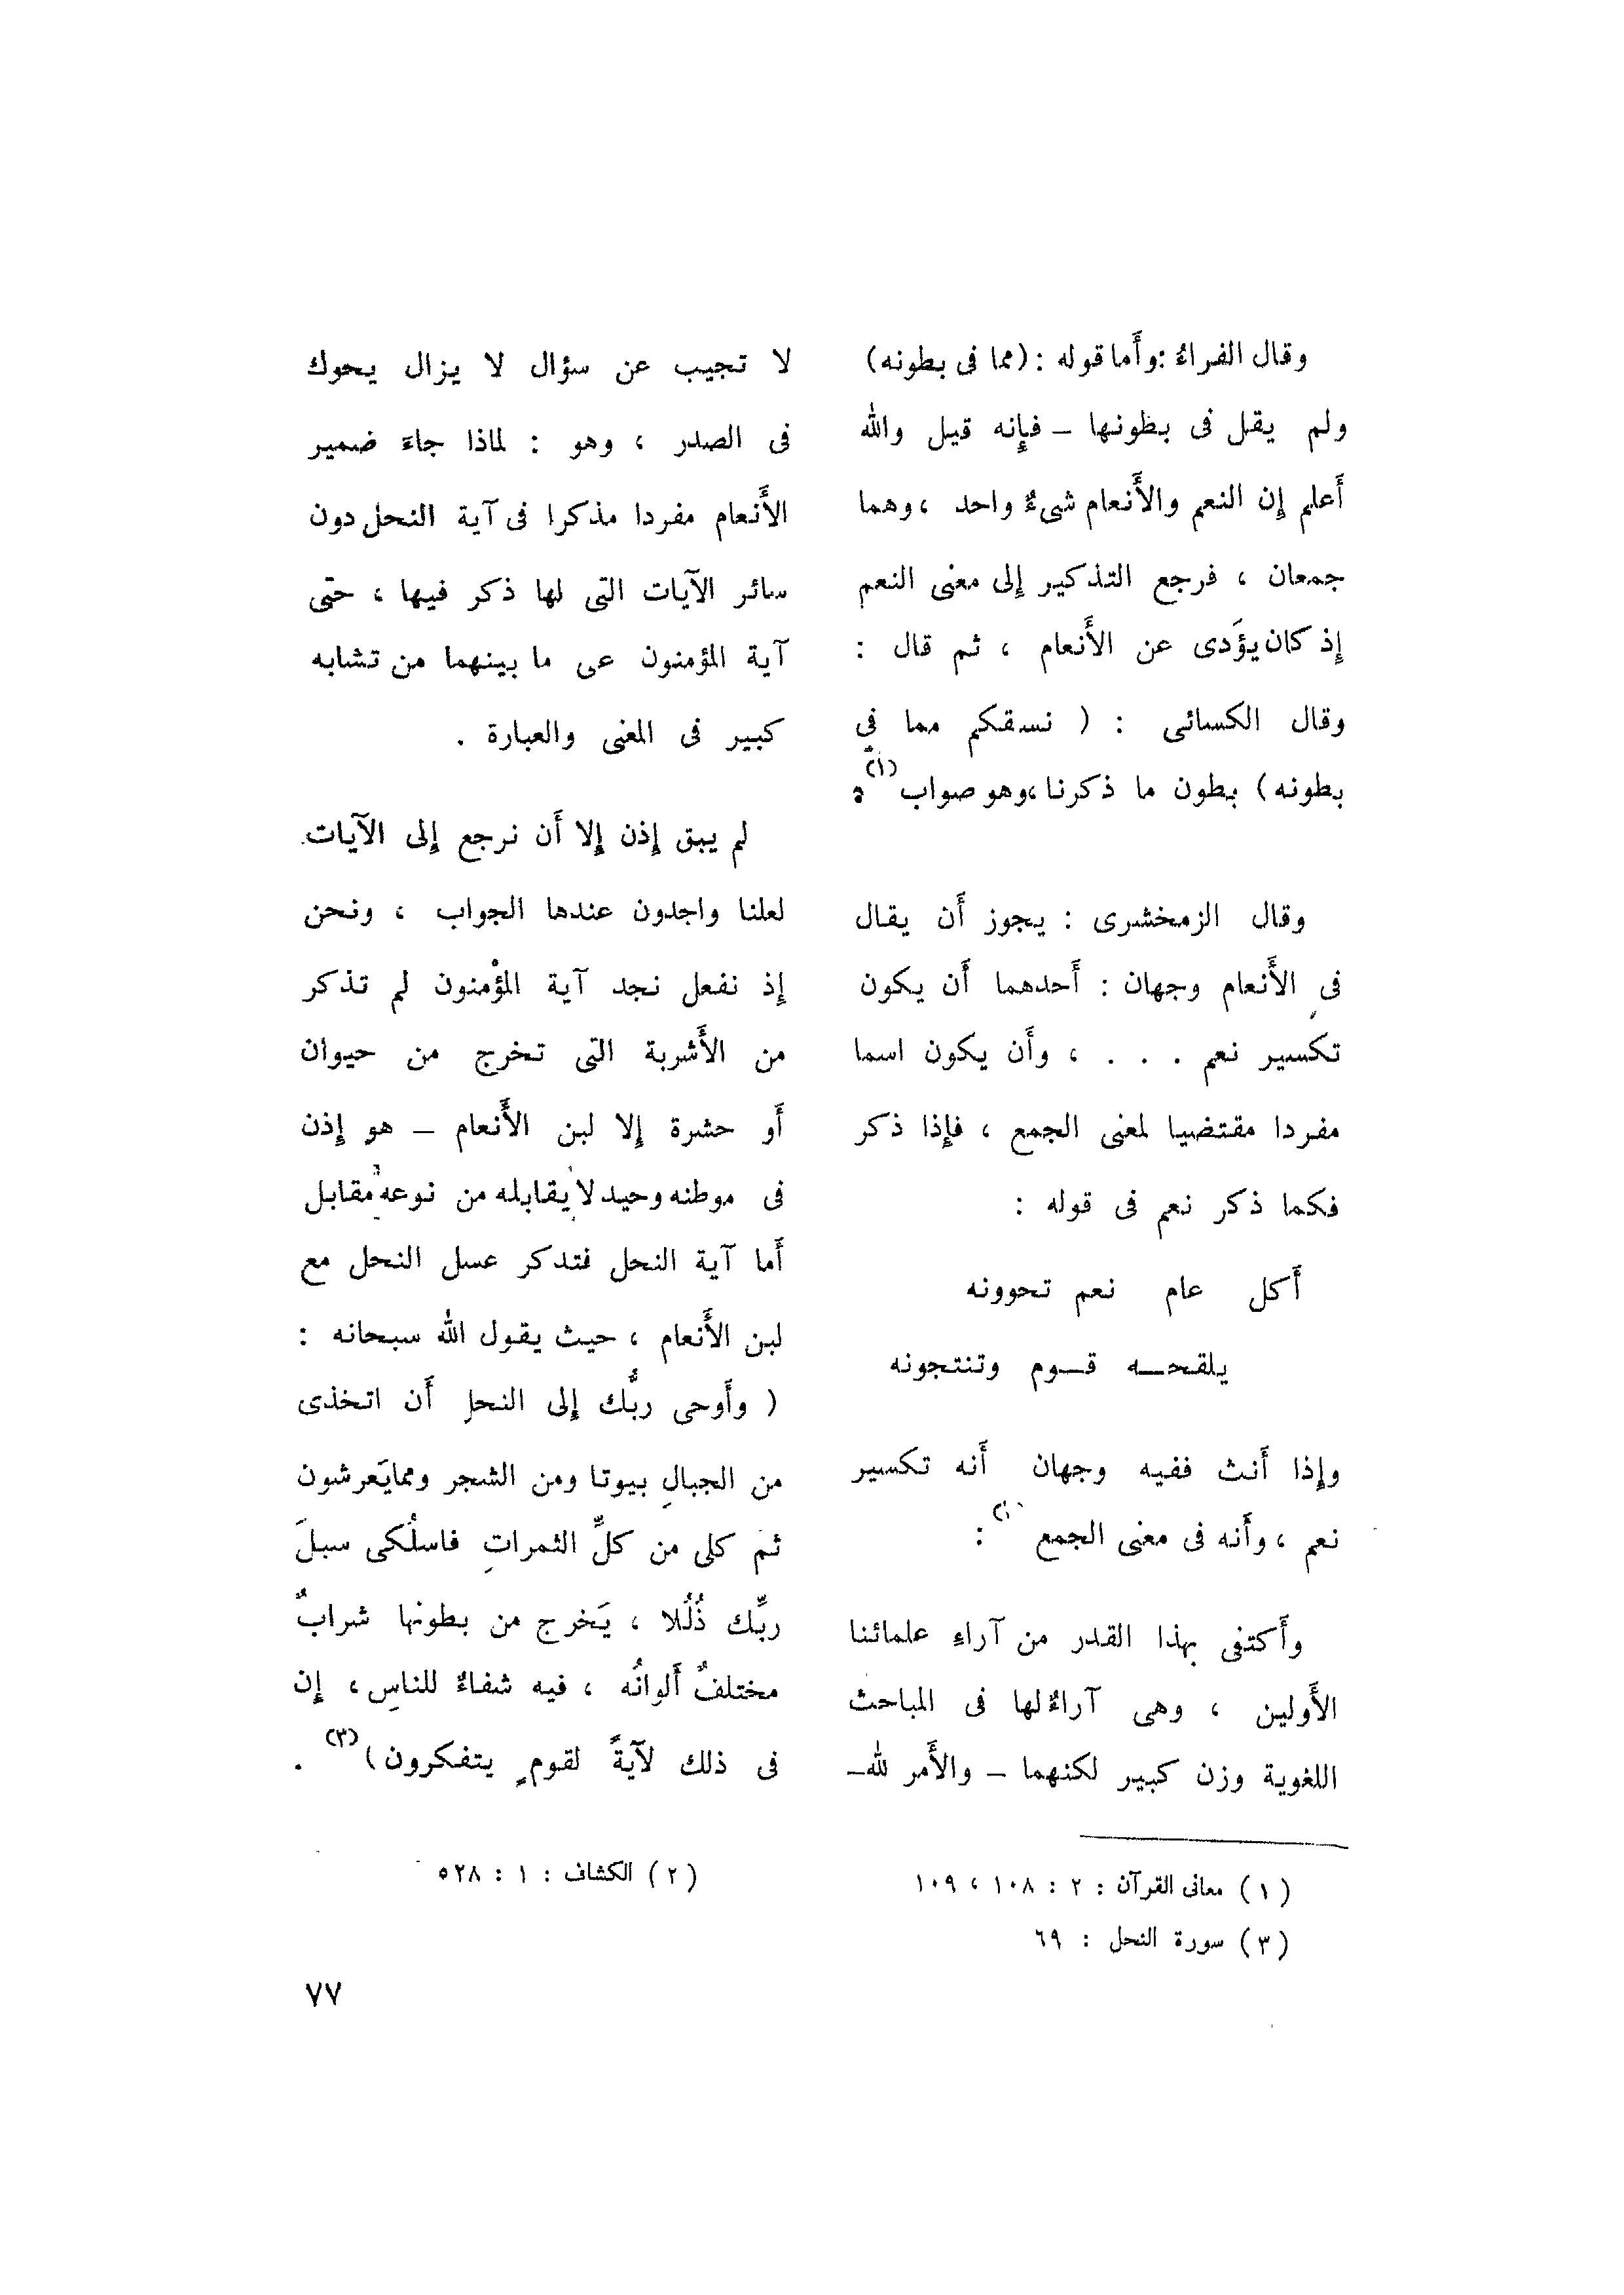 وقال الفراءُ :وأَما قوله : (مما فى بطونه)
ولم يقل فى بطونها – فإِنه قيل والله
أَعلم إِن النعم والأَنعام شىءٌ واحد ، وهما
جمعان ، فرجع التذكير إِلى معنى النعم
إِذ كان يؤَدى عن الأَنعام ، ثم قال :
وقال الكسائى : ( نسقكم مما فى
بطونه) بطون ما ذكرنا ،وهو صواب (١)
وقال الزمخشرى : يجوز أَن يقال
فى الأَنعام وجهان : أَحدهما أَن يكون
تكسير نعم . . . ، وأَن يكون اسما
مفردا مقتضيا لمعنى الجمع ، فإِذا ذكر
فكما ذكر نعم فى قوله :
أَكل عام نعم تحوونه
يلقحــه قــوم وتنتجونه
وإِذا أَنث ففيه وجهان أَنه تكسير
نعم ، وأَنه فى معنى الجمع :
وأَكتفى بهذا القدر من آراءِ علمائنا
الأَولين ، وهى آراءٌ لها فى المباحث
اللغوية وزن كبير لكنهما – والأَمر لله–
لا تجيب عن سؤال لا يزال يحوك
فى الصدر ، وهو : لماذا جاءَ ضمير
الأَنعام مفردا مذكرا فى آية النحل دون
سائر الآيات التى لها ذكر فيها ، حتى
آية المؤمنون عى ما بينهما من تشابه
كبير فى المعنى والعبارة .
لم يبق إِذن إِلا أَن نرجع إِلى الآيات
لعلنا واجدون عندها الجواب ، ونحن
إِذ نفعل نجد آية المؤْمنون لم تذكر
من الأَشربة التى تخرج من حيوان
أَو حشرة إِلا لبن الأَنعام – هو إِذن
فى موطنه وحيد لا يقابله من نوعه مقابل
أَما آية النحل فتدكر عسل النحل مع
لبن الأَنعام ، حيث يقول الله سبحانه :
( وأَوحى ربُّك إِلى النحلِ أَن اتخذى
من الجبالِ بيوتا ومن الشجر ومما يَعرشون
ثم كلى من كلِّ الثمراتِ فاسلُكى سبلَ
ربِّك ذُلُلا ، يَخرج من بطونها شرابٌ
مختلفٌ أَلوانُه ، فيه شفاءٌ للناسِ ، إِن
فى ذلك لآيةً لقومٍ يتفكرون) (٣) .
(١) معانى القرآن : ٢ : ١٠٨ ، ١٠٩
(٢) الكشاف : ١ : ٥٢٨
(٣) سورة النحل : ٦٩
٧٧